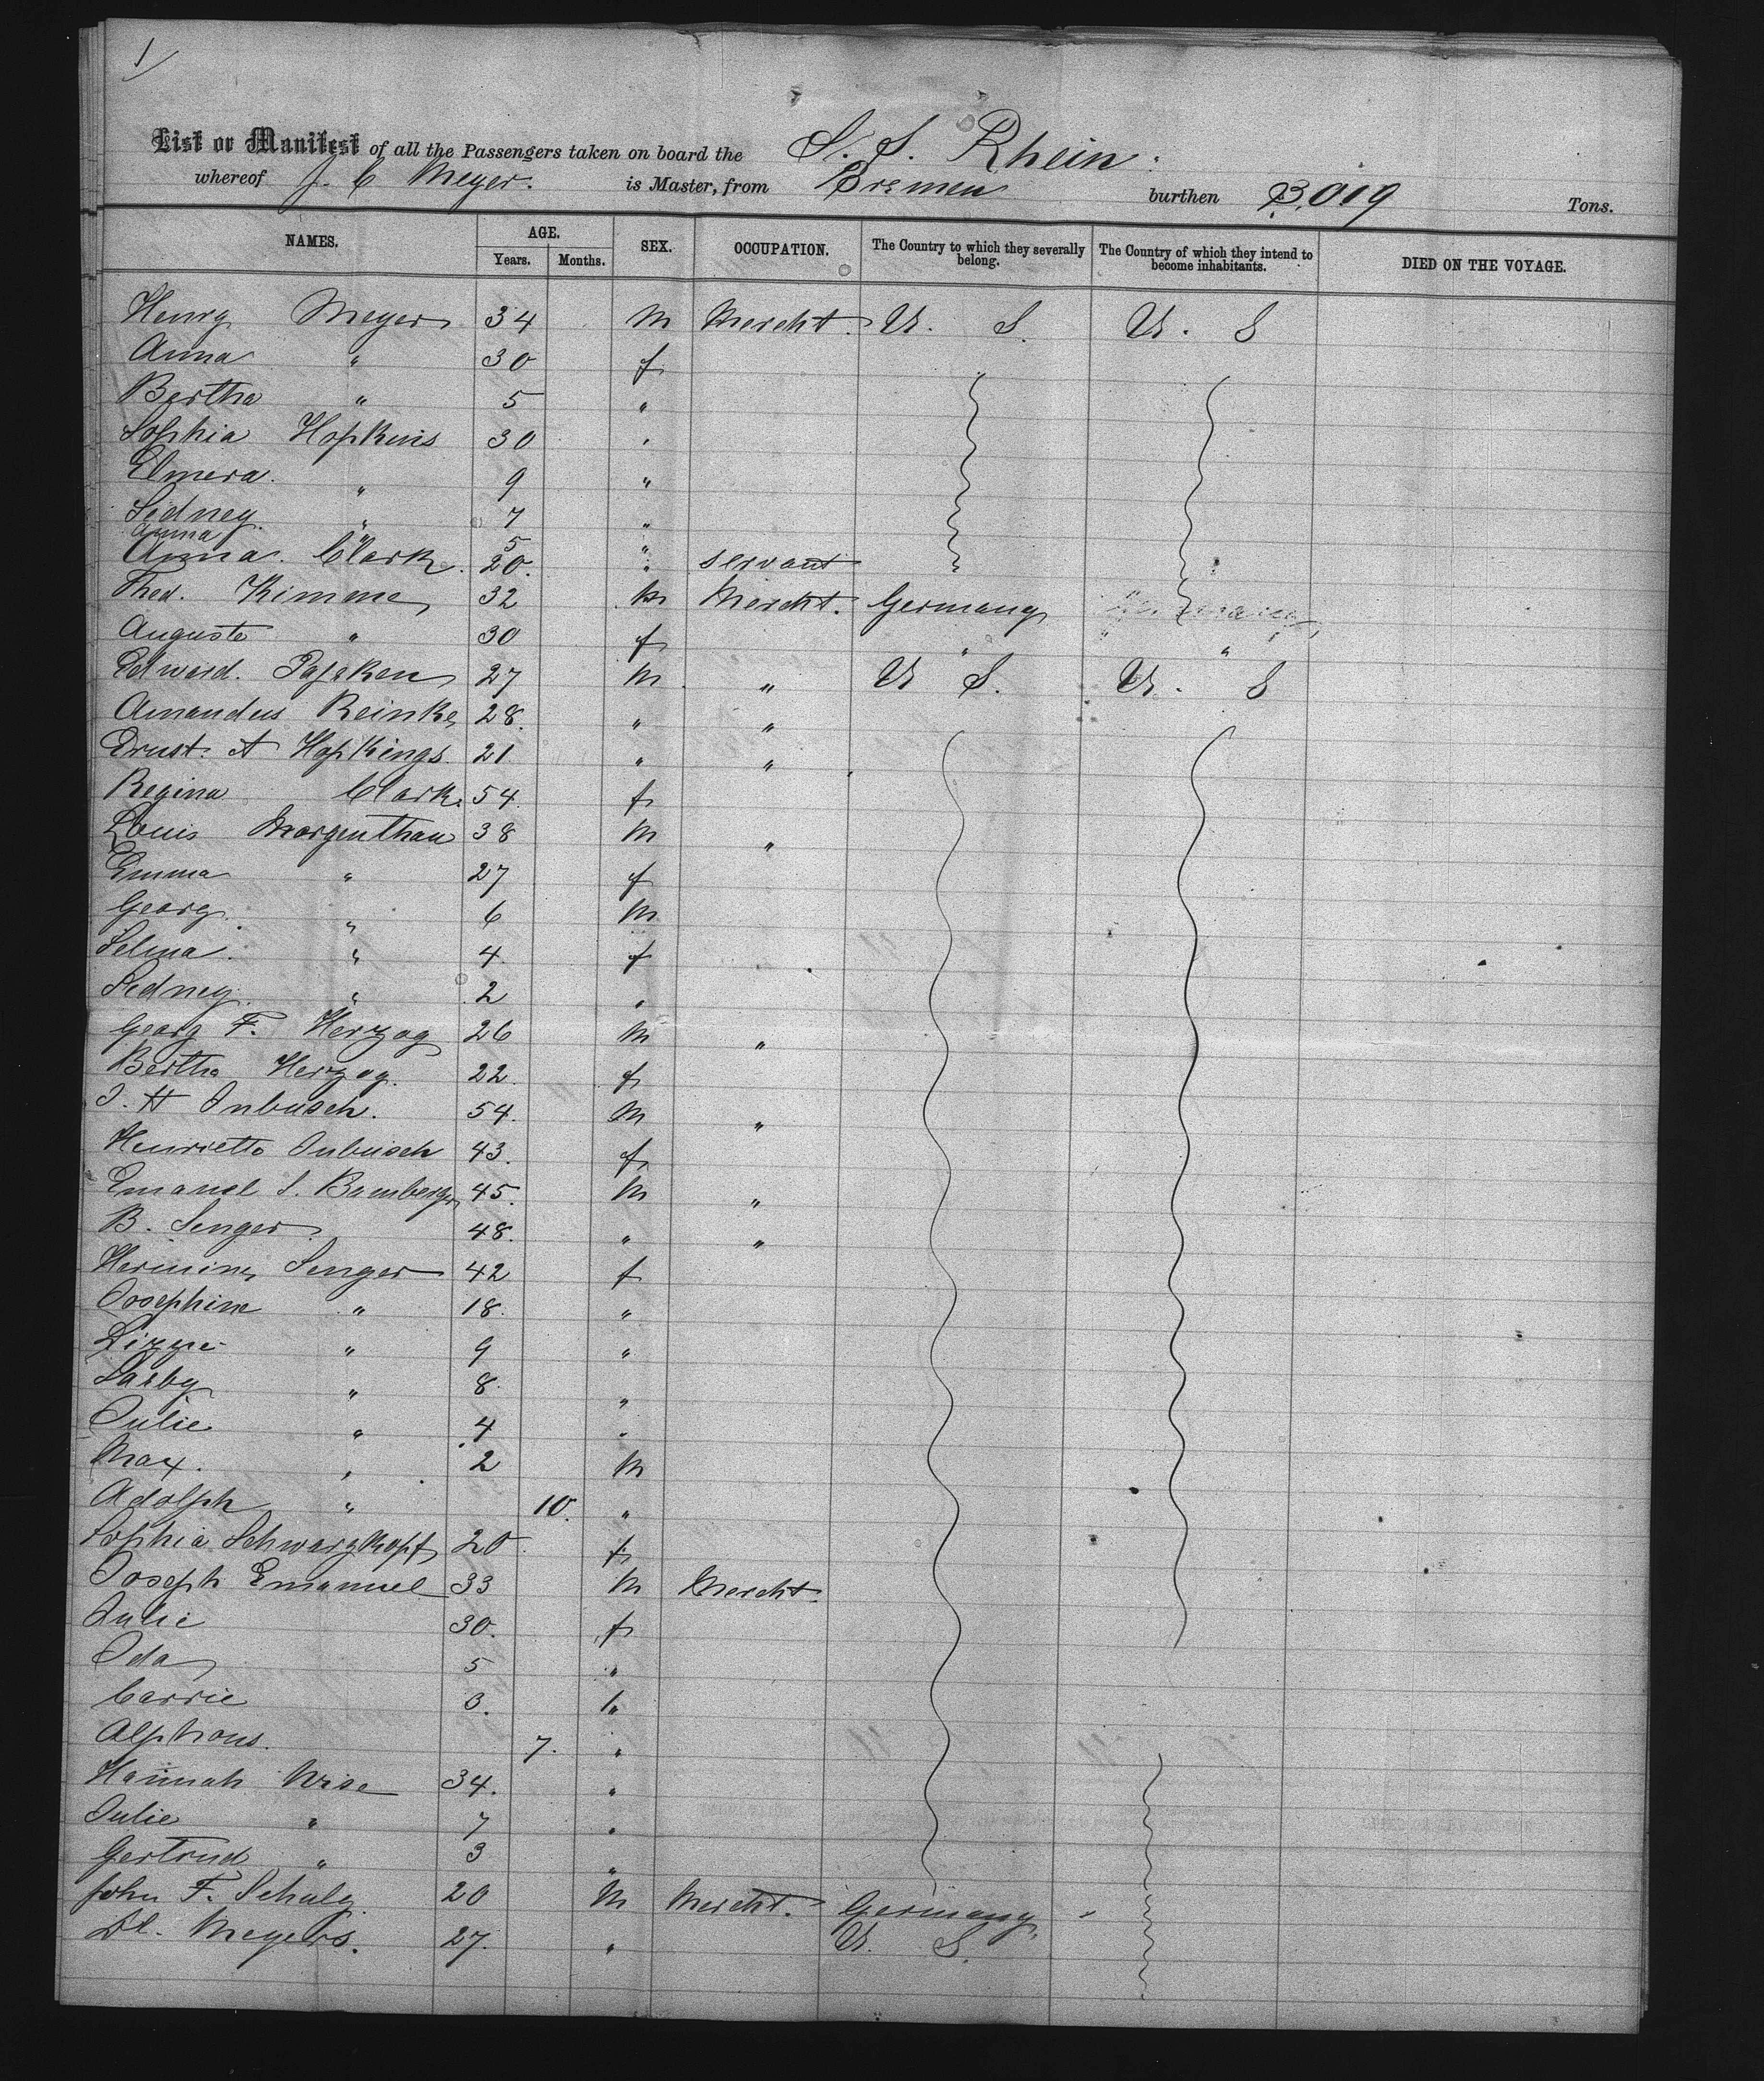 1
List or Manifest of all the Passengers taken on board the S. S. Rhein.
whereof J. C Meyer. is Master, from Bremen burthen 3,019 Tons.
NAMES. AGE. SEX. OCCUPATION. The Country to which they severally belong. The Country of which they intend to become inhabitants. DIED ON THE VOYAGE.
Years. Months.
Henry Meyer 34 M Mercht. U. S. U. S
Anna " 30 f
Bertha " 5 "
Sophia Hopkins 30 "
Elmera. " 9 "
Sidney. " 7 "
Anna " 5 "
Anna. Clark. 20. " servant
Thed. Kimme 32 M Mercht. Germany Germany
Auguste " 30 f " "
Edward. Pajeken 27 M " U S. U. S
Amandus Reinke 28. " "
Ernst. A Hopkings. 21 " "
Regina Clark. 54. f
Louis Morgenthau 38 M "
Emma " 27 f
Georg. " 6 M
Selma. " 4. f
Sedney. " 2 "
Georg F. Herzog 26 M "
Bertha Herzog. 22. f
J. H Inbusch. 54. M "
Henrietta Inbusch 43. f
Emanel S. Bamberger 45. M "
B. Senger 48. " "
Hermine Senger 42 f
Josephine " 18. "
Lizzie " 9 "
" 8. "
Julie " 4 "
Max. " 2 M
Adolph " 10. "
Sophia Schwarzkopf 20. f
Joseph Emanuel 33 M Mercht.
Julie 30. f
Ida 5 "
Carrie 3. "
Alphons. 7. "
Hannah Wise 34. "
Julie " 7 "
Gertrud " 3 "
John F. Schulz 20 M Mercht. Germany "
Meyers. 27. " U. S.